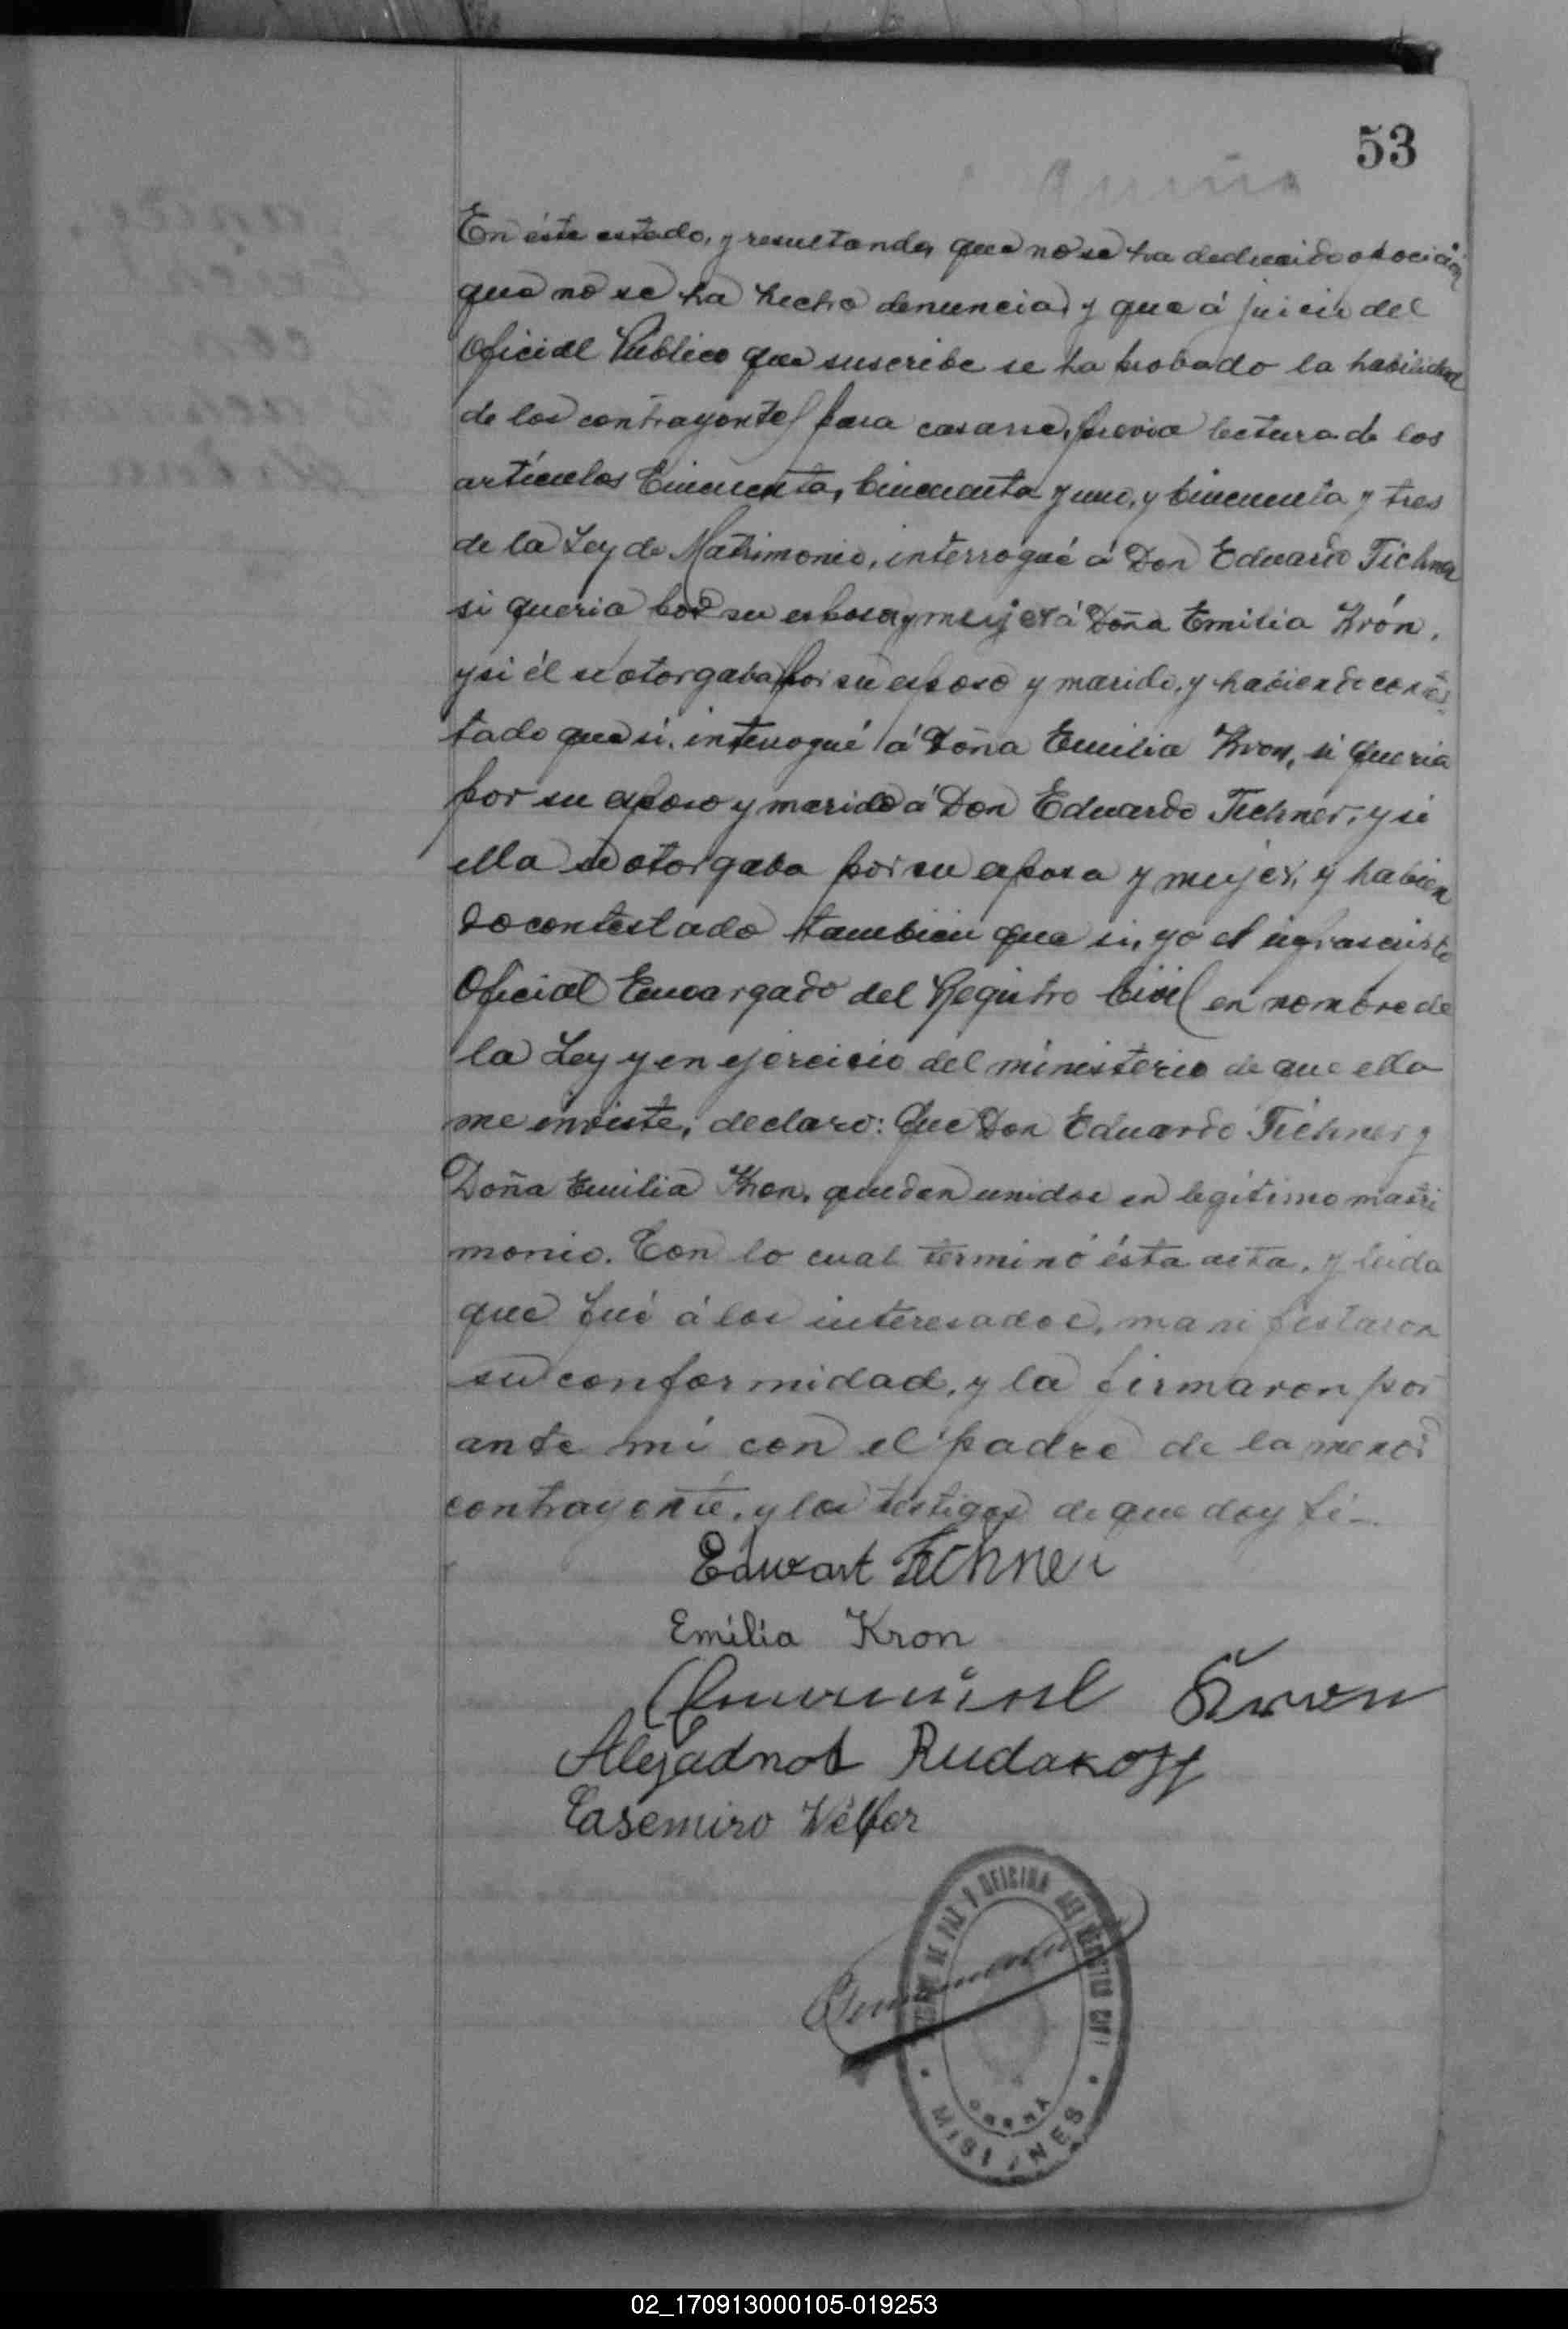 53
En éste estado, y resultando, que no se ha deducido oposición
que no se ha hecho denuncia, y que á juicio del
Oficial Público que suscribe se ha probado la habilidad
de los contrayentes para casarse, previa lectura de los
artículos Cincuenta, Cincuenta y uno, y Cincuenta y tres
de la Ley de Matrimonio, interrogué á Don Eduardo Tichner
si queria por su esposa y mujer á Doña Emilia Krón,
y si él se otorgaba por su esposo y marido, y habiendo contes-
tado que si, interrogué á Doña Emilia Kron, si queria
por su esposo y marido á Don Eduardo Tichner, y si
ella se otorgaba por su esposa y mujer, y habien
do contestado tambien que si, yo el infrascripto
Oficial Encargado del Registro Civil en nombre de
la Ley y en ejercicio del ministerio de que ella
me inviste, declaro: Que Don Eduardo Tichner y
Doña Emilia Kron, quedan unidos en legítimo matri
monio. Con lo cual terminó ésta acta, y leida
que fué á los interesados, manifestaron
su conformidad, y la firmaron por
ante mi con el padre de la menor
contrayente, y los testigos de que doy fé -
Edward Tichner
Emilia Kron
Kron
Alejadnot Rudakoff
Casemiro Welfer
DE PAZ Y OFICINA DEL REGISTRO CIVIL
OBERÁ
MISIONES
02_170913000105-019253